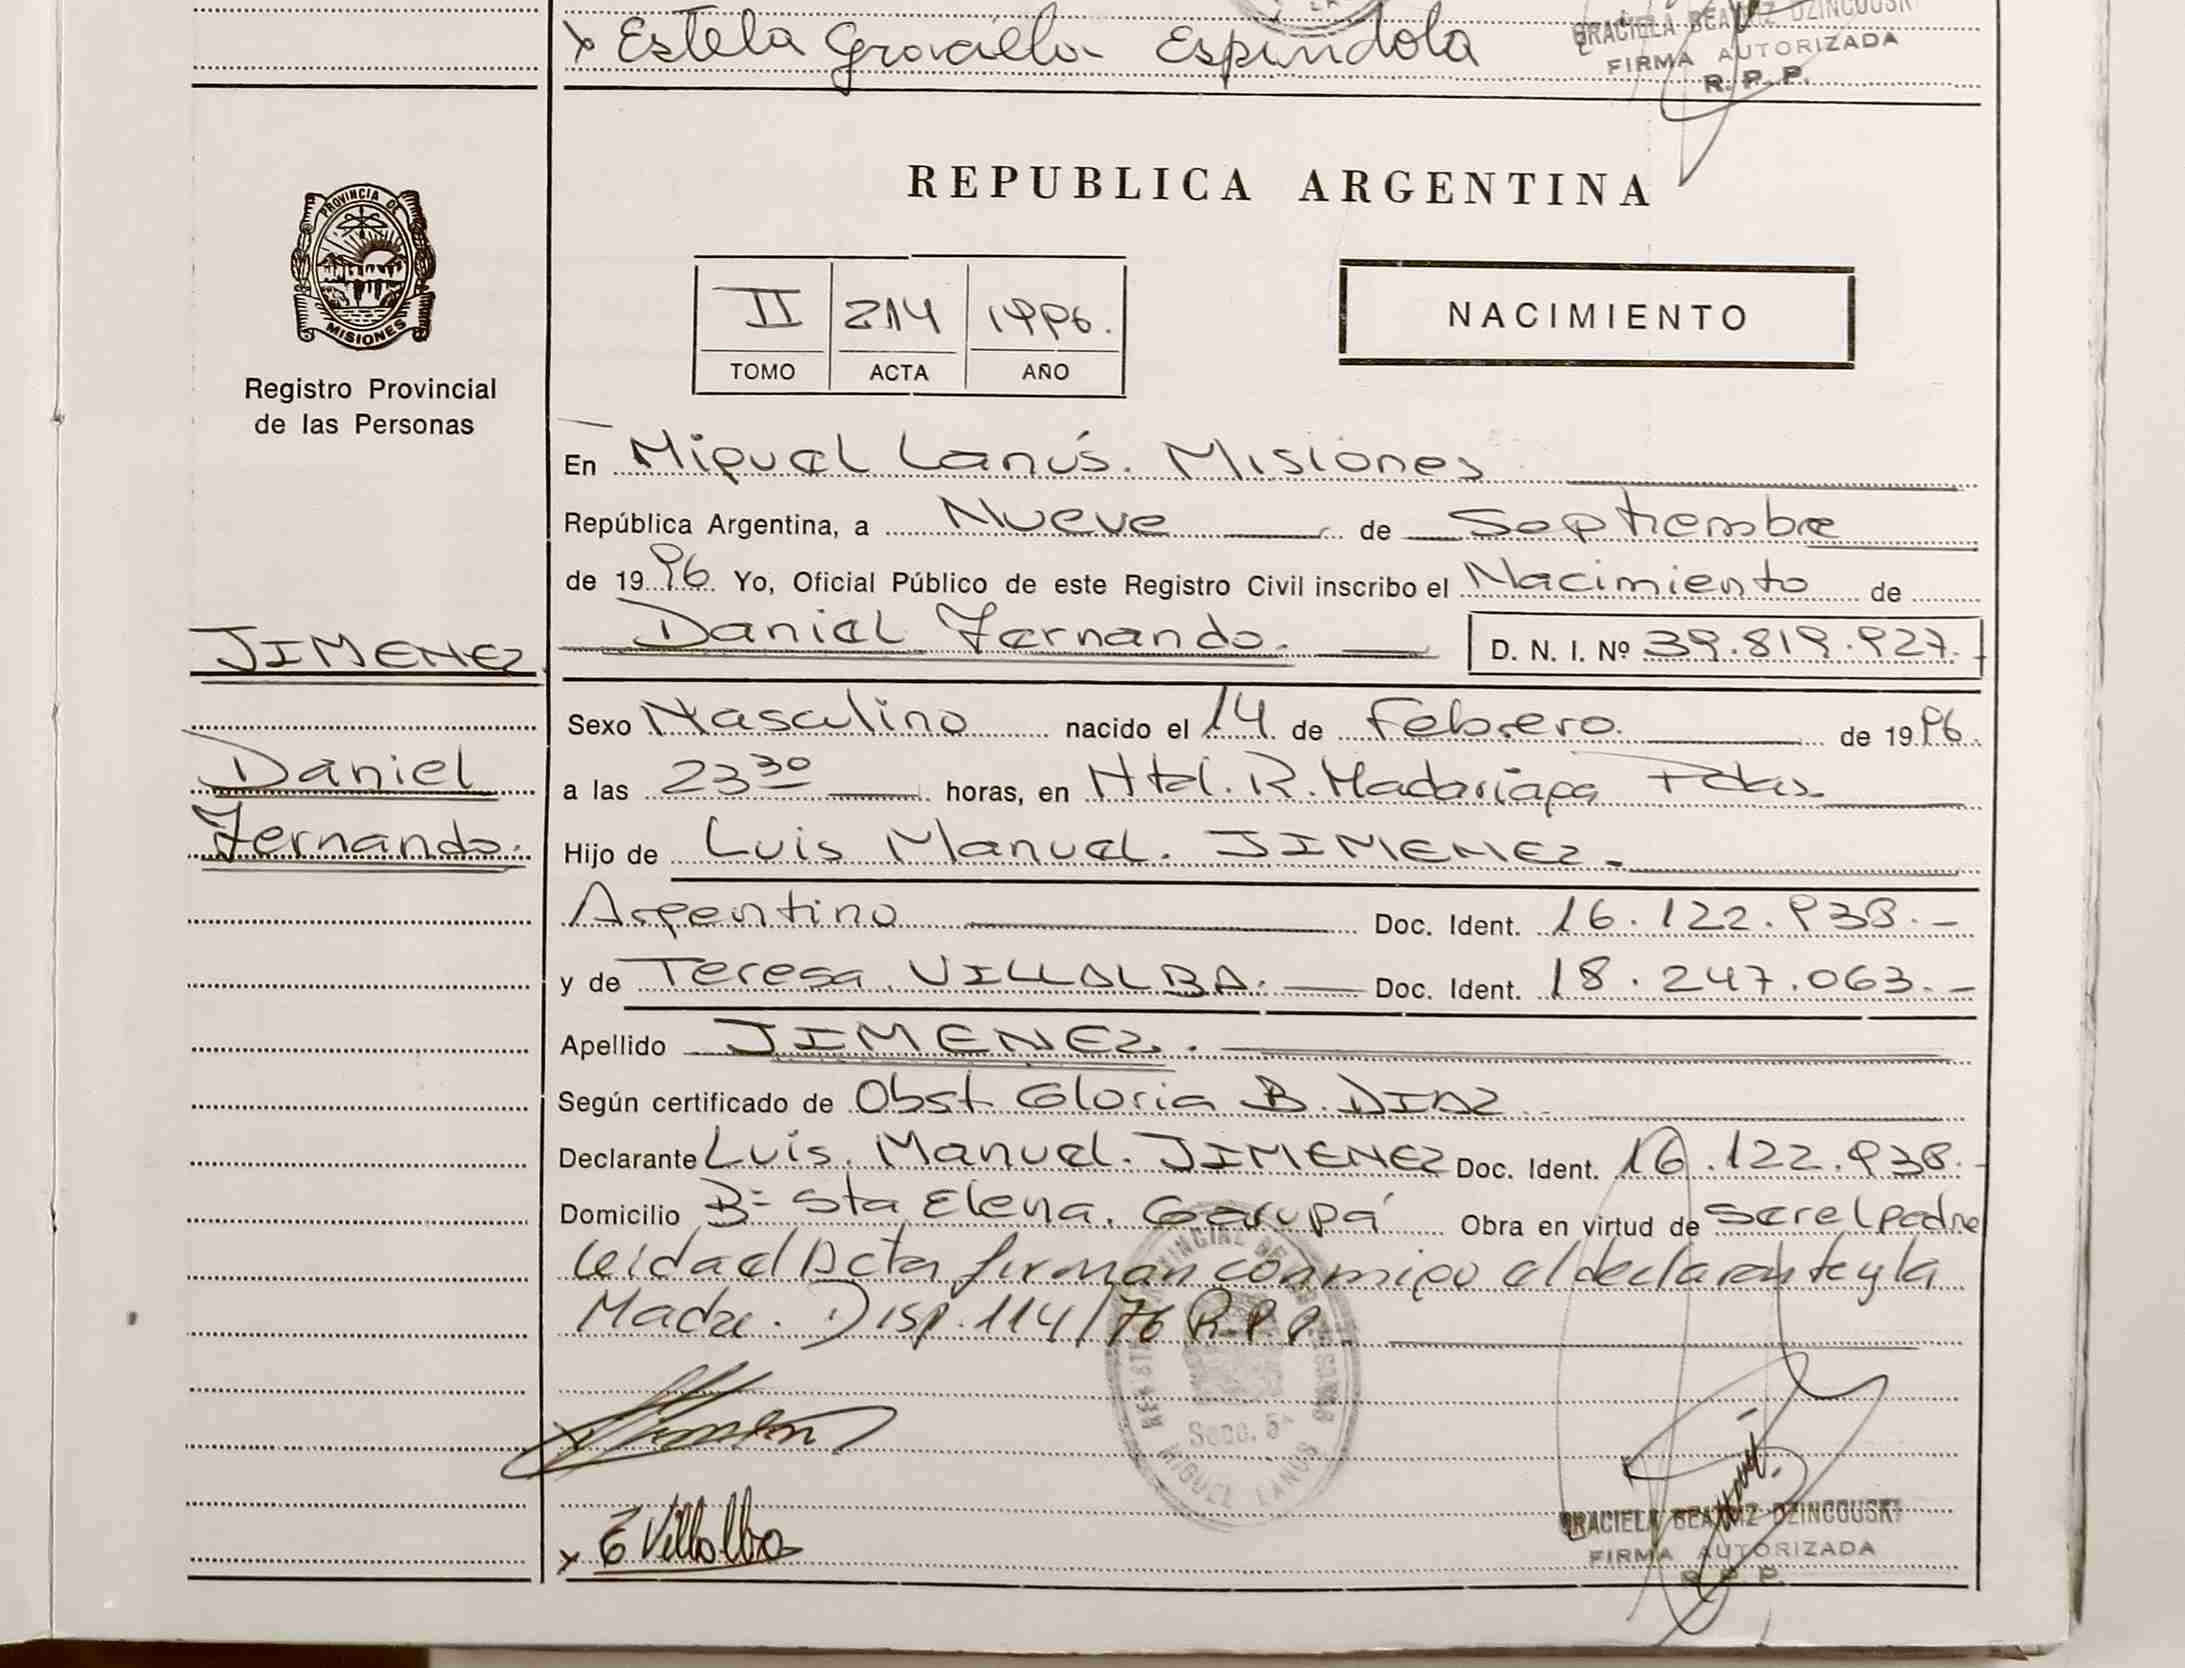 x Estela Graciela Espindola
GRACIELA BEATRIZ DZINCOUSKI
FIRMA AUTORIZADA
R. P. P.
PROVINCIA DE
MISIONES
Registro Provincial
de las Personas
REPUBLICA ARGENTINA
II 214 1996.
TOMO ACTA AÑO
NACIMIENTO
En Miguel Lanús. Misiones
República Argentina, a Nueve de Septiembre
de 1996 Yo, Oficial Público de este Registro Civil inscribo el Nacimiento de
JIMENEZ Daniel Fernando. D. N. I. Nº 39.819.927.
Sexo Masculino nacido el 14 de Febrero. de 1996.
Daniel a las 23 30 horas, en Htal. R. Madariaga Pdas
Fernando. Hijo de Luis Manuel. JIMENEZ.
Argentino Doc. Ident. 16.122.938.-
y de Teresa VILLALBA. Doc. Ident. 18.247.063.-
Apellido JIMENEZ.
Según certificado de Obst Gloria B. DIAZ
Declarante Luis. Manuel. JIMENEZ Doc. Ident. 16.122.938.-
Domicilio Bº Sta Elena. Garupá Obra en virtud de Ser el padre
leida el Acta firman conmigo el declarante y la
Madre. Disp. 114/76 R.P.P.
Secc. 5ª
MIGUEL LANUS
x E Villalba
GRACIELA BEATRIZ DZINCOUSKI
FIRMA AUTORIZADA
R. P. P.